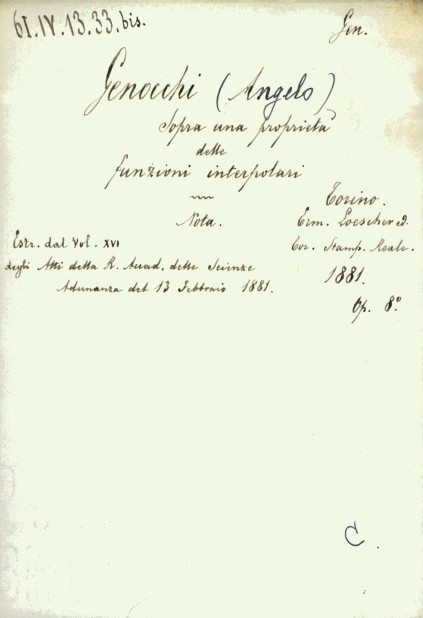 61.IV.13.33.bis.
Gen.
Genocchi (Angelo)
Sopra una proprietà
delle
funzioni interpolari
Nota.
Torino.
Erm. Loescher ed.
Coi. Stamp. Reale.
1881.
Op. 8º
Estr. dal Vol. XVI
degli Atti della R. Accad. delle Scienze
Adunanza del 13 Febbraio 1881.
C.